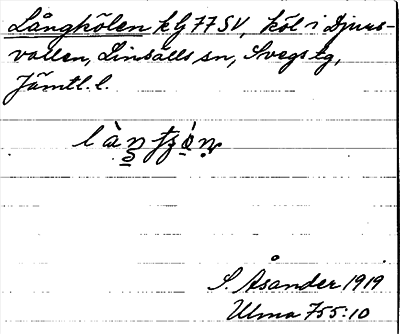 Långkölen k G 77 SV, köl i Djurs-
vallen, Linsälls sn, Svegs tg,
Jämtl. l.
S. Åsander 1919
Ulma 755:10